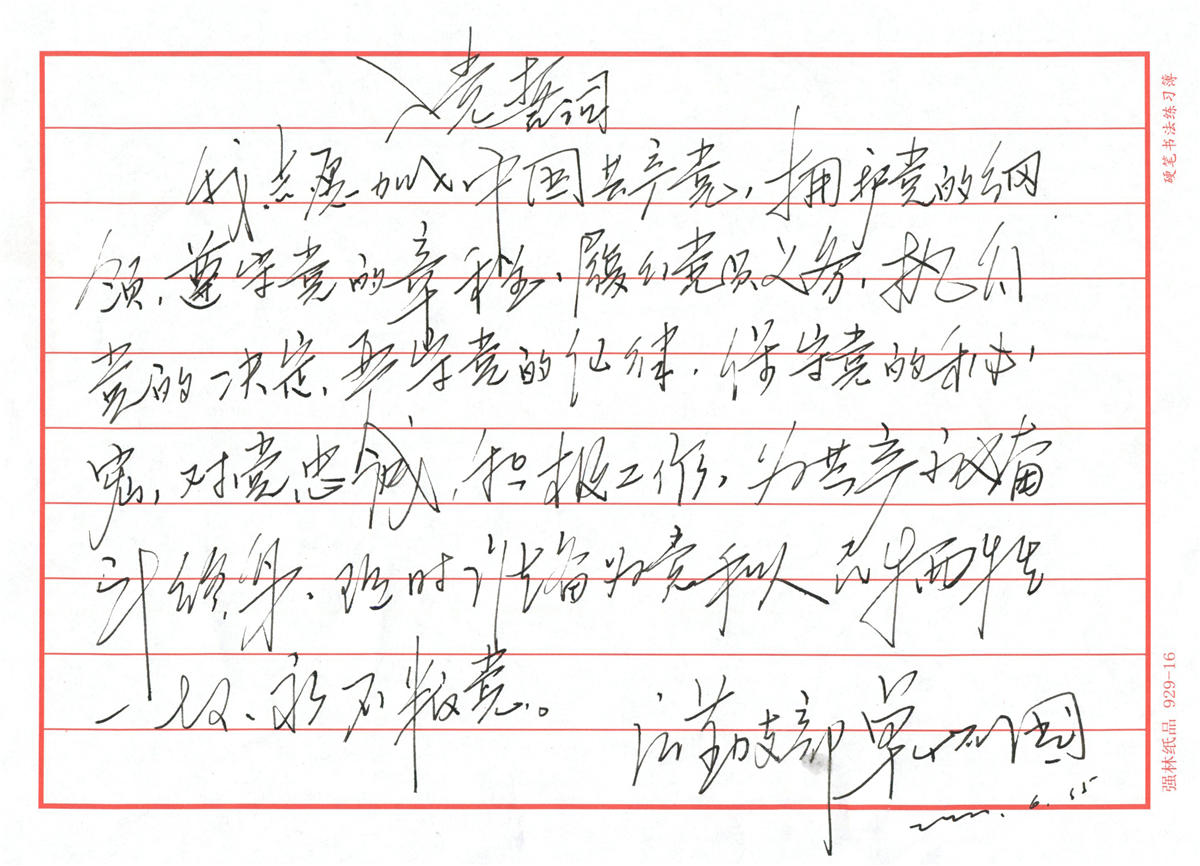 入党誓词
我志愿加入中国共产党，拥护党的纲
领，遵守党的章程，履行党员义务，执行
党的决定，严守党的纪律，保守党的秘
密，对党忠诚，积极工作，为共产主义奋
斗终身，随时准备为党和人民牺牲
一切，永不叛党。
支部 单 国
6.15
硬笔书法练习薄
强林纸品 929-16